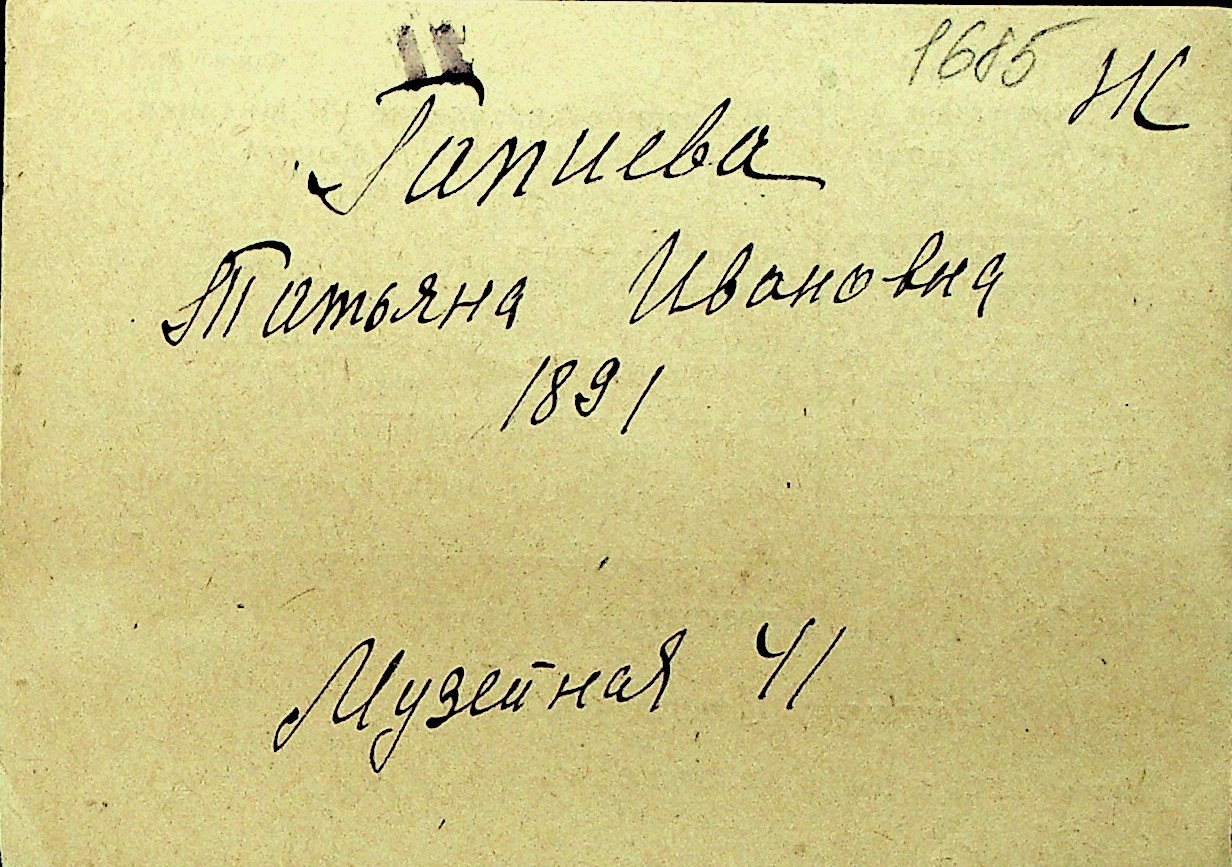 1685 Ж
Гапиева
Татьяна Ивановна
1891
Музейная 41